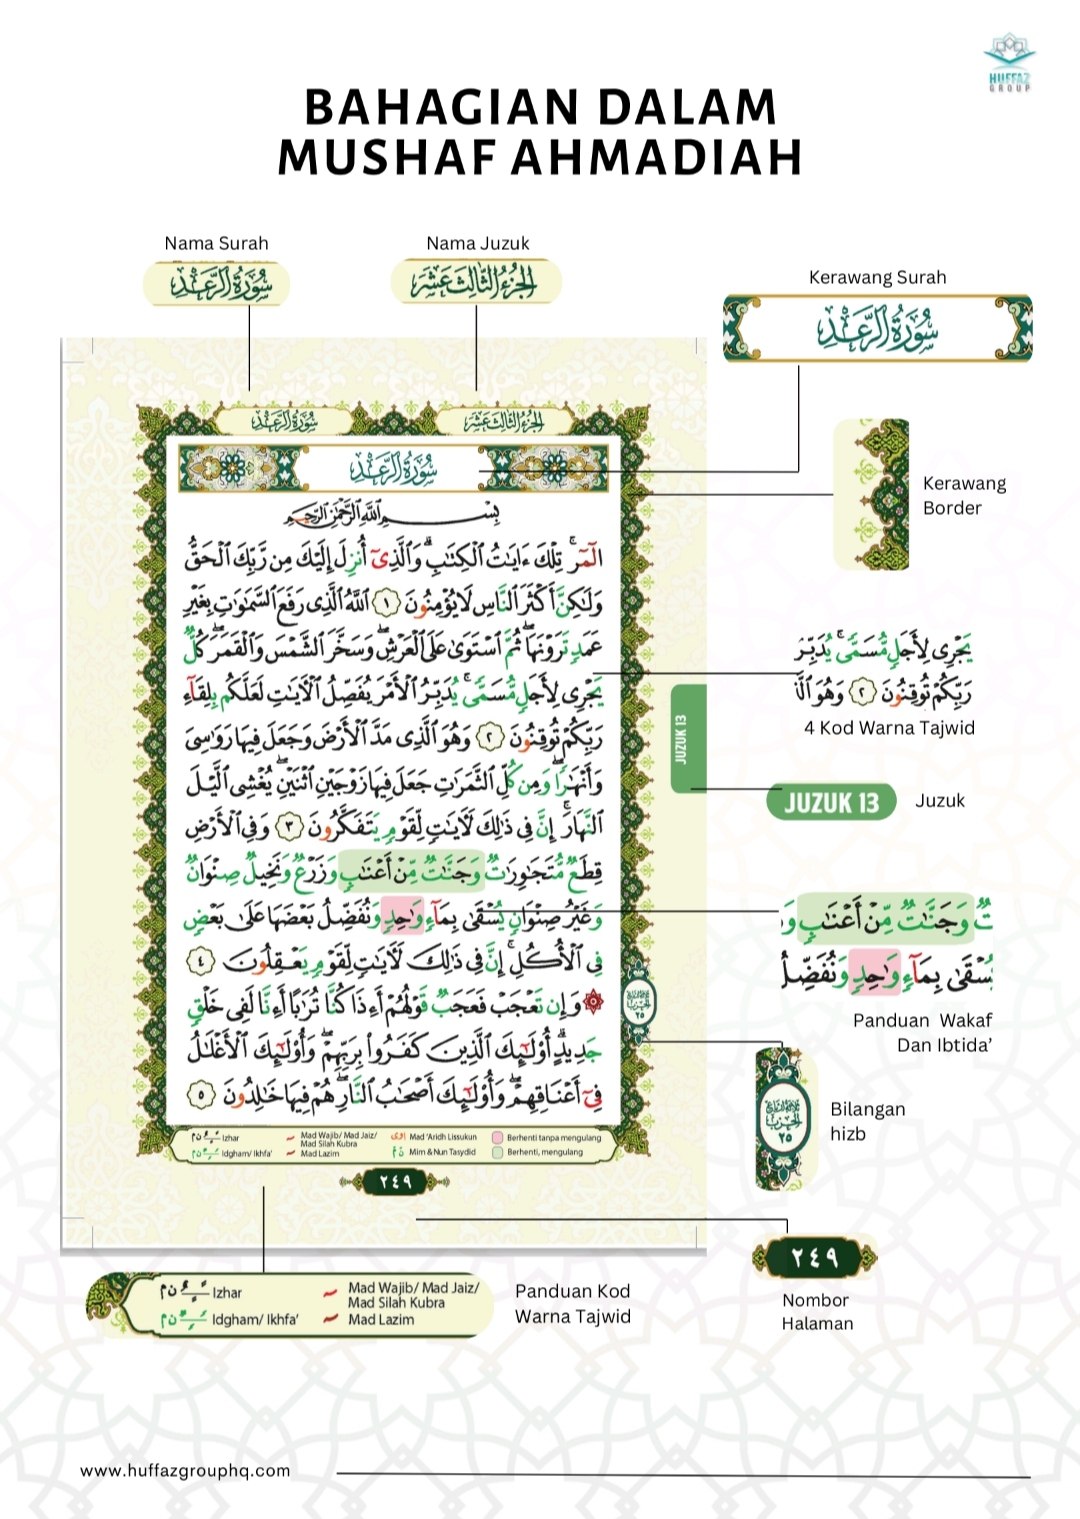 HUFFAZ
GROUP
BAHAGIAN DALAM
MUSHAF AHMADIAH
Nama Surah
سُورَةُ الرَّعْدِ
Nama Juzuk
الجُزْءُ الثَّالِثَ عَشَرَ
Kerawang Surah
سُورَةُ الرَّعْدِ
سُورَةُ الرَّعْدِ
الجُزْءُ الثَّالِثَ عَشَرَ
سُورَةُ الرَّعْدِ
بِسْمِ اللَّهِ الرَّحْمَٰنِ الرَّحِيمِ
الٓمٓرۚ تِلْكَ ءَايَٰتُ ٱلْكِتَٰبِۗ وَٱلَّذِىٓ أُنزِلَ إِلَيْكَ مِن رَّبِّكَ ٱلْحَقُّ
وَلَٰكِنَّ أَكْثَرَ ٱلنَّاسِ لَا يُؤْمِنُونَ ١ ٱللَّهُ ٱلَّذِى رَفَعَ ٱلسَّمَٰوَٰتِ بِغَيْرِ
عَمَدٍ تَرَوْنَهَاۖ ثُمَّ ٱسْتَوَىٰ عَلَى ٱلْعَرْشِۖ وَسَخَّرَ ٱلشَّمْسَ وَٱلْقَمَرَۖ كُلٌّ
يَجْرِى لِأَجَلٍ مُّسَمًّىۚ يُدَبِّرُ ٱلْأَمْرَ يُفَصِّلُ ٱلْءَايَٰتِ لَعَلَّكُم بِلِقَآءِ
رَبِّكُمْ تُوقِنُونَ ٢ وَهُوَ ٱلَّذِى مَدَّ ٱلْأَرْضَ وَجَعَلَ فِيهَا رَوَٰسِىَ
وَأَنْهَٰرًاۖ وَمِن كُلِّ ٱلثَّمَرَٰتِ جَعَلَ فِيهَا زَوْجَيْنِ ٱثْنَيْنِۖ يُغْشِى ٱلَّيْلَ
ٱلنَّهَارَۚ إِنَّ فِى ذَٰلِكَ لَءَايَٰتٍ لِّقَوْمٍ يَتَفَكَّرُونَ ٣ وَفِى ٱلْأَرْضِ
قِطَعٌ مُّتَجَٰوِرَٰتٌ وَجَنَّٰتٌ مِّنْ أَعْنَٰبٍ وَزَرْعٌ وَنَخِيلٌ صِنْوَانٌ
وَغَيْرُ صِنْوَانٍ يُسْقَىٰ بِمَآءٍ وَٰحِدٍ وَنُفَضِّلُ بَعْضَهَا عَلَىٰ بَعْضٍ
فِى ٱلْأُكُلِۚ إِنَّ فِى ذَٰلِكَ لَءَايَٰتٍ لِّقَوْمٍ يَعْقِلُونَ ٤
۞ وَإِن تَعْجَبْ فَعَجَبٌ قَوْلُهُمْ أَءِذَا كُنَّا تُرَٰبًا أَءِنَّا لَفِى خَلْقٍ
جَدِيدٍۗ أُو۟لَٰٓئِكَ ٱلَّذِينَ كَفَرُوا۟ بِرَبِّهِمْۖ وَأُو۟لَٰٓئِكَ ٱلْأَغْلَٰلُ
فِىٓ أَعْنَاقِهِمْۖ وَأُو۟لَٰٓئِكَ أَصْحَٰبُ ٱلنَّارِۖ هُمْ فِيهَا خَٰلِدُونَ ٥
Izhar
Idgham/ Ikhfa'
Mad Wajib/ Mad Jaiz/
Mad Silah Kubra
Mad Lazim
Mad 'Aridh Lissukun
Mim & Nun Tasydid
Berhenti tanpa mengulang
Berhenti, mengulang
٢٤٩
JUZUK 13
Kerawang
Border
يَجْرِى لِأَجَلٍ مُّسَمًّىۚ يُدَبِّرُ
رَبِّكُمْ تُوقِنُونَ ٢ وَهُوَ ٱلَّذ
4 Kod Warna Tajwid
JUZUK 13
Juzuk
تٌ وَجَنَّٰتٌ مِّنْ أَعْنَٰبٍ وَ
يُسْقَىٰ بِمَآءٍ وَٰحِدٍ وَنُفَضِّلُ
Panduan Wakaf
Dan Ibtida'
الحزب
٢٥
Bilangan
hizb
٢٤٩
Nombor
Halaman
ن م Izhar
ن م Idgham/ Ikhfa'
Mad Wajib/ Mad Jaiz/
Mad Silah Kubra
Mad Lazim
Panduan Kod
Warna Tajwid
www.huffazgrouphq.com